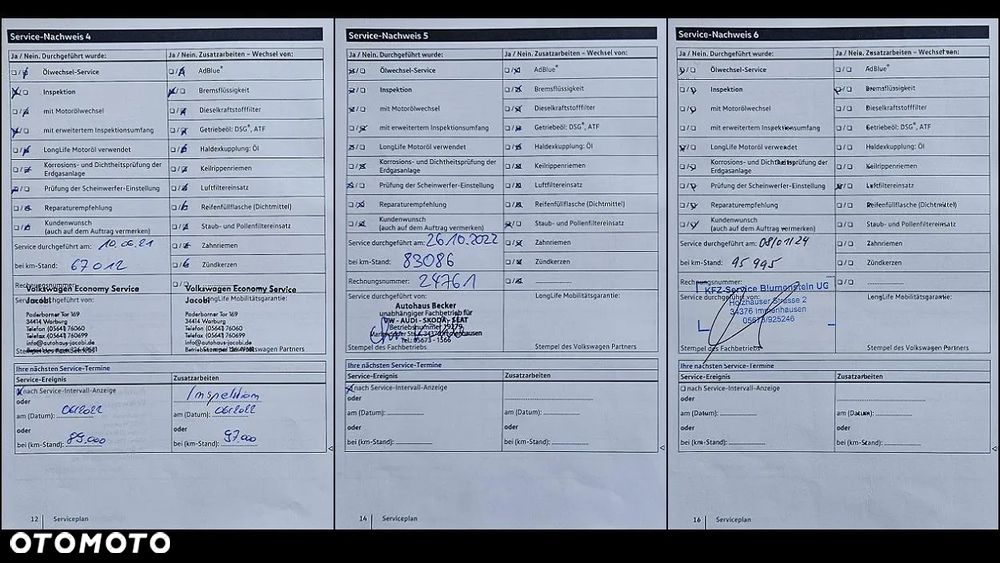 Service-Nachweis 4
Ja / Nein. Durchgeführt wurde:
Ja / Nein. Zusatzarbeiten – Wechsel von:
Ölwechsel-Service
AdBlue®
Inspektion
Bremsflüssigkeit
mit Motorölwechsel
Dieselkraftstofffilter
mit erweitertem Inspektionsumfang
Getriebeöl: DSG®, ATF
LongLife Motoröl verwendet
Haldexkupplung: Öl
Korrosions- und Dichtheitsprüfung der
Erdgasanlage
Keilrippenriemen
Prüfung der Scheinwerfer-Einstellung
Luftfiltereinsatz
Reparaturempfehlung
Reifenfüllflasche (Dichtmittel)
Kundenwunsch
(auch auf dem Auftrag vermerken)
Staub- und Pollenfiltereinsatz
Service durchgeführt am: 10.06.21
Zahnriemen
bei km-Stand: 67012
Zündkerzen
Rechnungsnummer:
Volkswagen Economy Service
Jacobi
Paderborner Tor 169
34414 Warburg
Telefon (05641) 76060
Telefax (05641) 760699
info@autohaus-jacobi.de
Volkswagen Economy Service
Jacobi
Paderborner Tor 169
34414 Warburg
Telefon (05641) 76060
Telefax (05641) 760699
info@autohaus-jacobi.de
Ihre nächsten Service-Termine
Service-Ereignis
Zusatzarbeiten
nach Service-Intervall-Anzeige
Inspektion
oder
am (Datum): 06/2022
am (Datum): 06/2022
oder
bei (km-Stand): 89.000
bei (km-Stand): 97.000
12 Serviceplan
Service-Nachweis 5
Ja / Nein. Durchgeführt wurde:
Ja / Nein. Zusatzarbeiten – Wechsel von:
Ölwechsel-Service
AdBlue®
Inspektion
Bremsflüssigkeit
mit Motorölwechsel
Dieselkraftstofffilter
mit erweitertem Inspektionsumfang
Getriebeöl: DSG®, ATF
LongLife Motoröl verwendet
Haldexkupplung: Öl
Korrosions- und Dichtheitsprüfung der
Erdgasanlage
Keilrippenriemen
Prüfung der Scheinwerfer-Einstellung
Luftfiltereinsatz
Reparaturempfehlung
Reifenfüllflasche (Dichtmittel)
Kundenwunsch
(auch auf dem Auftrag vermerken)
Staub- und Pollenfiltereinsatz
Service durchgeführt am: 26.10.2022
Zahnriemen
bei km-Stand: 83086
Zündkerzen
Rechnungsnummer: 24761
Service durchgeführt von:
LongLife Mobilitätsgarantie:
Autohaus Becker
unabhängiger Fachbetrieb für
VW - AUDI - SKODA - SEAT
Tel.: 05673 - 1566
Stempel des Fachbetriebs
Stempel des Volkswagen Partners
Ihre nächsten Service-Termine
Service-Ereignis
Zusatzarbeiten
nach Service-Intervall-Anzeige
oder
am (Datum):
am (Datum):
oder
oder
bei (km-Stand):
bei (km-Stand):
14 Serviceplan
Service-Nachweis 6
Ja / Nein. Durchgeführt wurde:
Ja / Nein. Zusatzarbeiten – Wechsel von:
Ölwechsel-Service
AdBlue®
Inspektion
Bremsflüssigkeit
mit Motorölwechsel
Dieselkraftstofffilter
mit erweitertem Inspektionsumfang
Getriebeöl: DSG®, ATF
LongLife Motoröl verwendet
Haldexkupplung: Öl
Korrosions- und Dichtheitsprüfung der
Erdgasanlage
Keilrippenriemen
Prüfung der Scheinwerfer-Einstellung
Luftfiltereinsatz
Reparaturempfehlung
Reifenfüllflasche (Dichtmittel)
Kundenwunsch
(auch auf dem Auftrag vermerken)
Staub- und Pollenfiltereinsatz
Service durchgeführt am: 08/01/24
Zahnriemen
bei km-Stand: 95995
Zündkerzen
Rechnungsnummer:
KFZ-Service Blumenstein UG
Service durchgeführt von:
LongLife Mobilitätsgarantie:
Holzhäuser Strasse 2
34376 Immenhausen
05673/925246
Stempel des Fachbetriebs
Stempel des Volkswagen Partners
Ihre nächsten Service-Termine
Service-Ereignis
Zusatzarbeiten
nach Service-Intervall-Anzeige
oder
am (Datum):
am (Datum):
oder
oder
bei (km-Stand):
bei (km-Stand):
16 Serviceplan
OTOMOTO